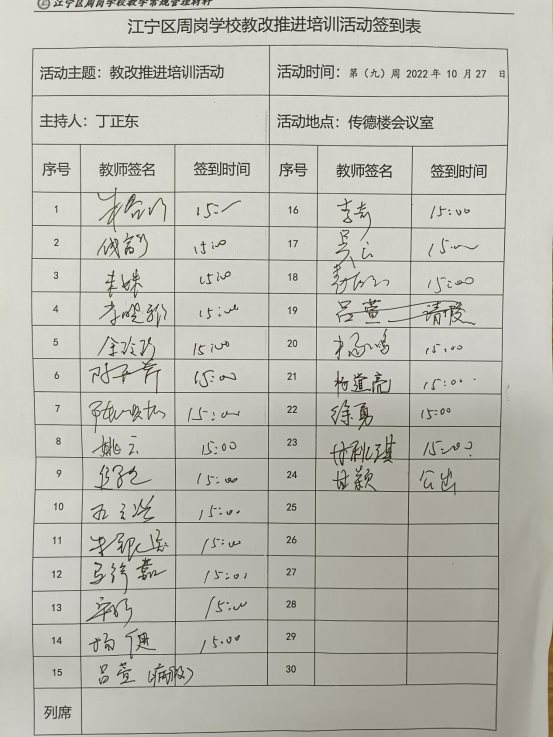 江宁区周岗学校教学常规管理材料
江宁区周岗学校教改推进培训活动签到表
活动主题：教改推进培训活动 活动时间：第（九）周 2022 年 10 月 27 日
主持人：丁正东 活动地点：传德楼会议室
序号 教师签名 签到时间 序号 教师签名 签到时间
1 15:00 16 李青 15:00
2 15:00 17 吴云 15:00
3 朱妹 15:00 18 15:00
4 李晓雅 15:00 19 吕萱 请假
5 余玲珍 15:00 20 杨鸣 15:00
6 15:00 21 杨道亮 15:00
7 15:00 22 徐勇 15:00
8 姚云 15:00 23 15:00
9 15:00 24 甘颖 公出
10 15:00 25
11 朱银 15:00 26
12 15:00 27
13 15:00 28
14 杨健 15:00 29
15 吕萱（病假） 30
列席